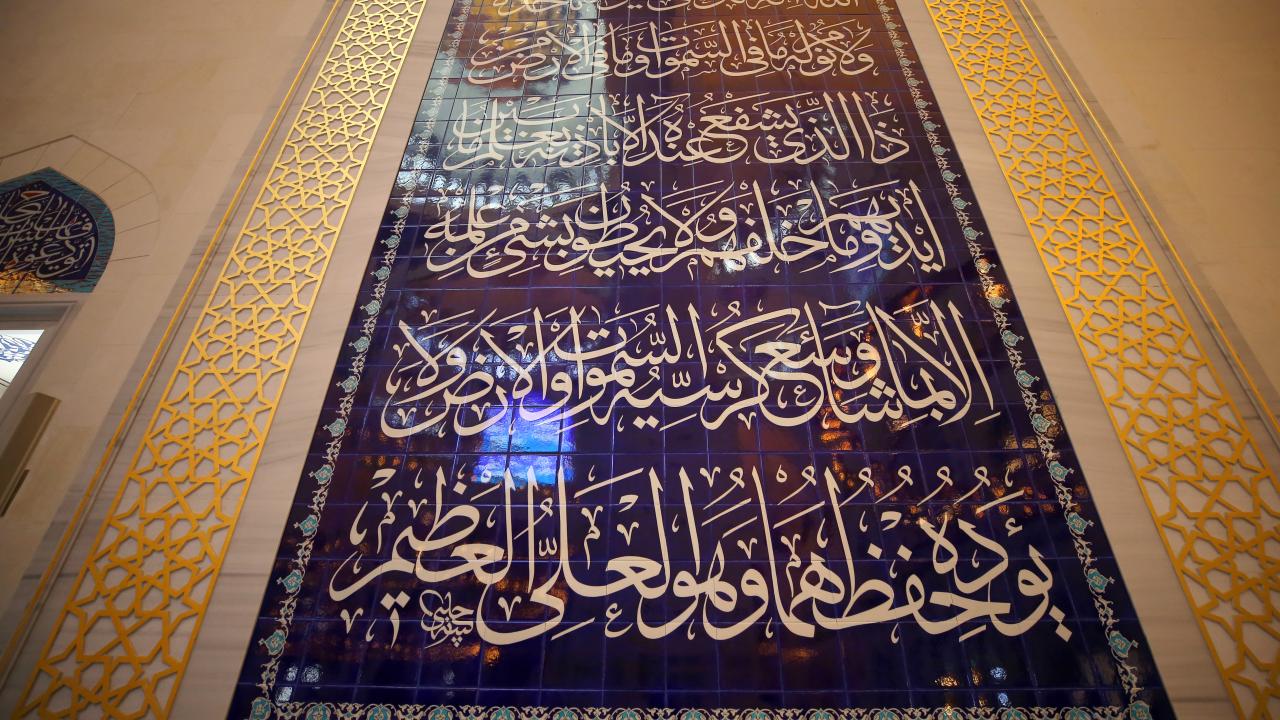 وَلَا نَوْمٌ لَهُ مَا فِي السَّمٰوَاتِ وَمَا فِي الْاَرْضِ مَنْ
ذَا الَّذِي يَشْفَعُ عِنْدَهُ اِلَّا بِاِذْنِهِ يَعْلَمُ مَا بَيْنَ
اَيْدِيهِمْ وَمَا خَلْفَهُمْ وَلَا يُحِيطُونَ بِشَيْءٍ مِنْ عِلْمِهِ
اِلَّا بِمَا شَاءَ وَسِعَ كُرْسِيُّهُ السَّمٰوَاتِ وَالْاَرْضَ وَلَا
يَؤُدُهُ حِفْظُهُمَا وَهُوَ الْعَلِيُّ الْعَظِيمُ